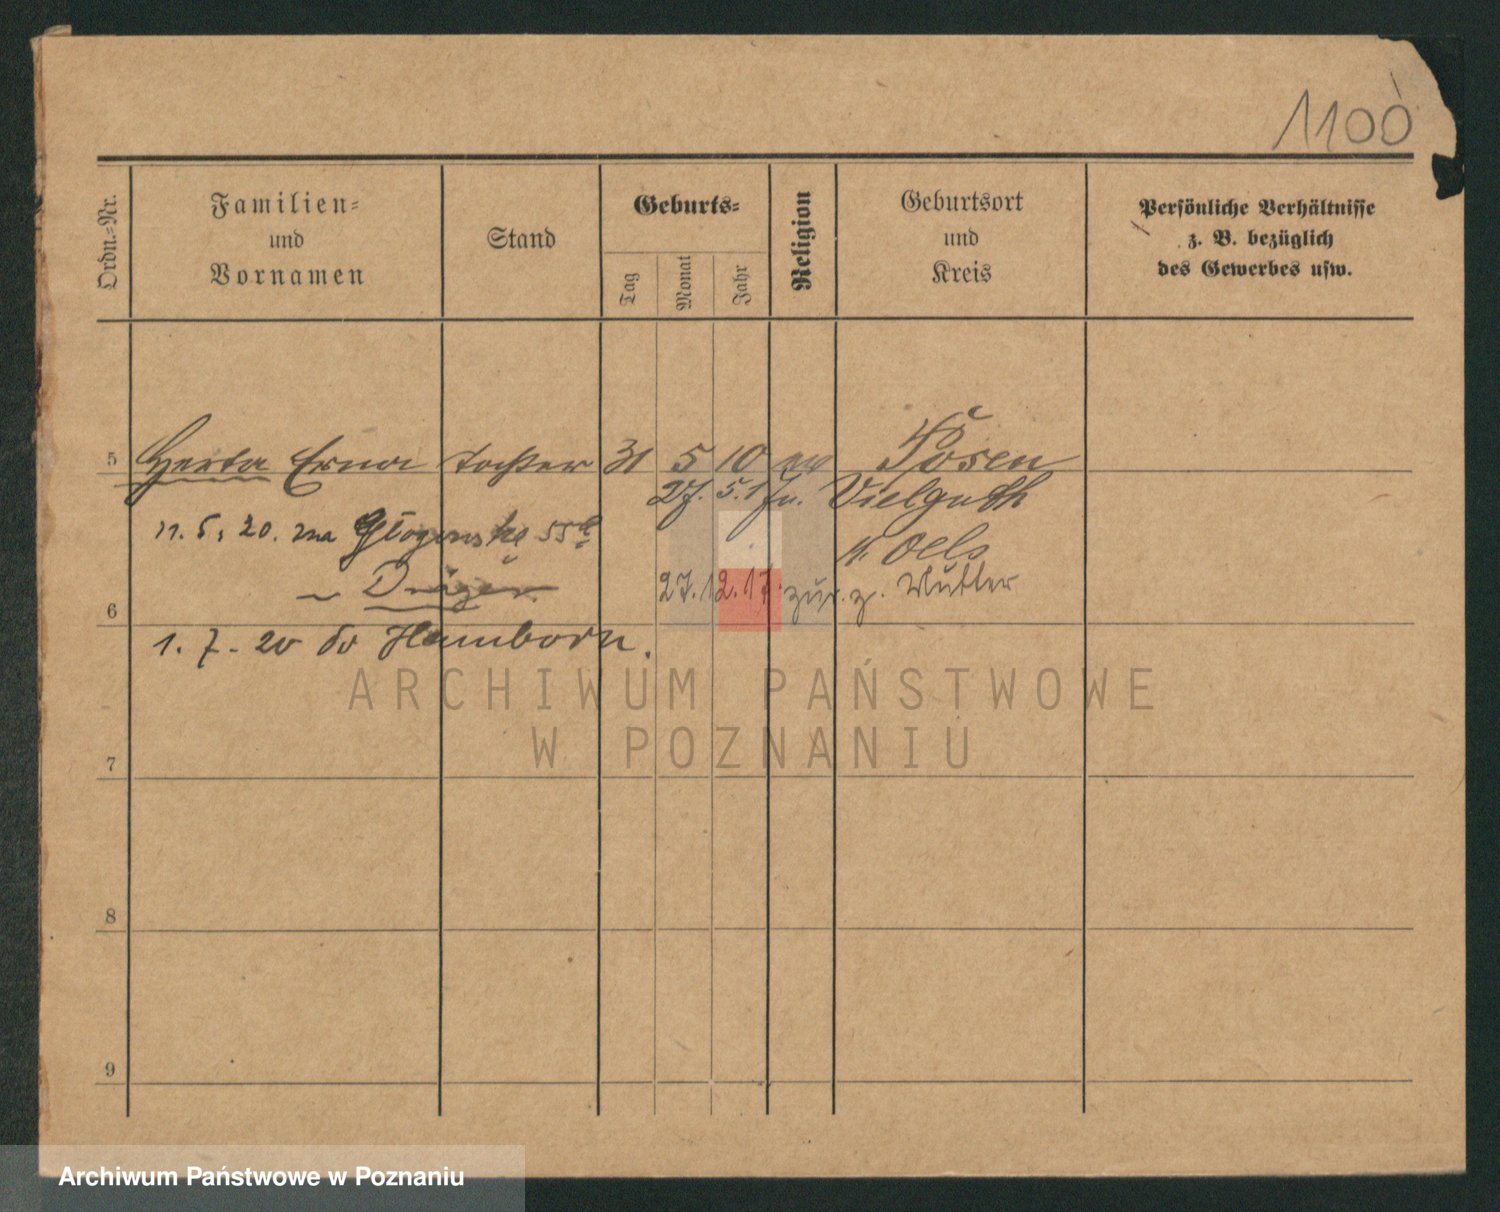 1100
Ordn.-Nr.
Familien-
und
Vornamen
Stand
Geburts-
Tag
Monat
Jahr
Religion
Geburtsort
und
Kreis
Persönliche Verhältnisse
z. B. bezüglich
des Gewerbes usw.
5 Herta Erna Tochter 31 5 10 Posen
27. 5. 17 n. Vielguth
Oels
11. 5. 20. na
27. 12. 17. zur. z. Mutter
6
1. 7. 20 do Hamborn.
ARCHIWUM PAŃSTWOWE
W POZNANIU
7
8
9
Archiwum Państwowe w Poznaniu